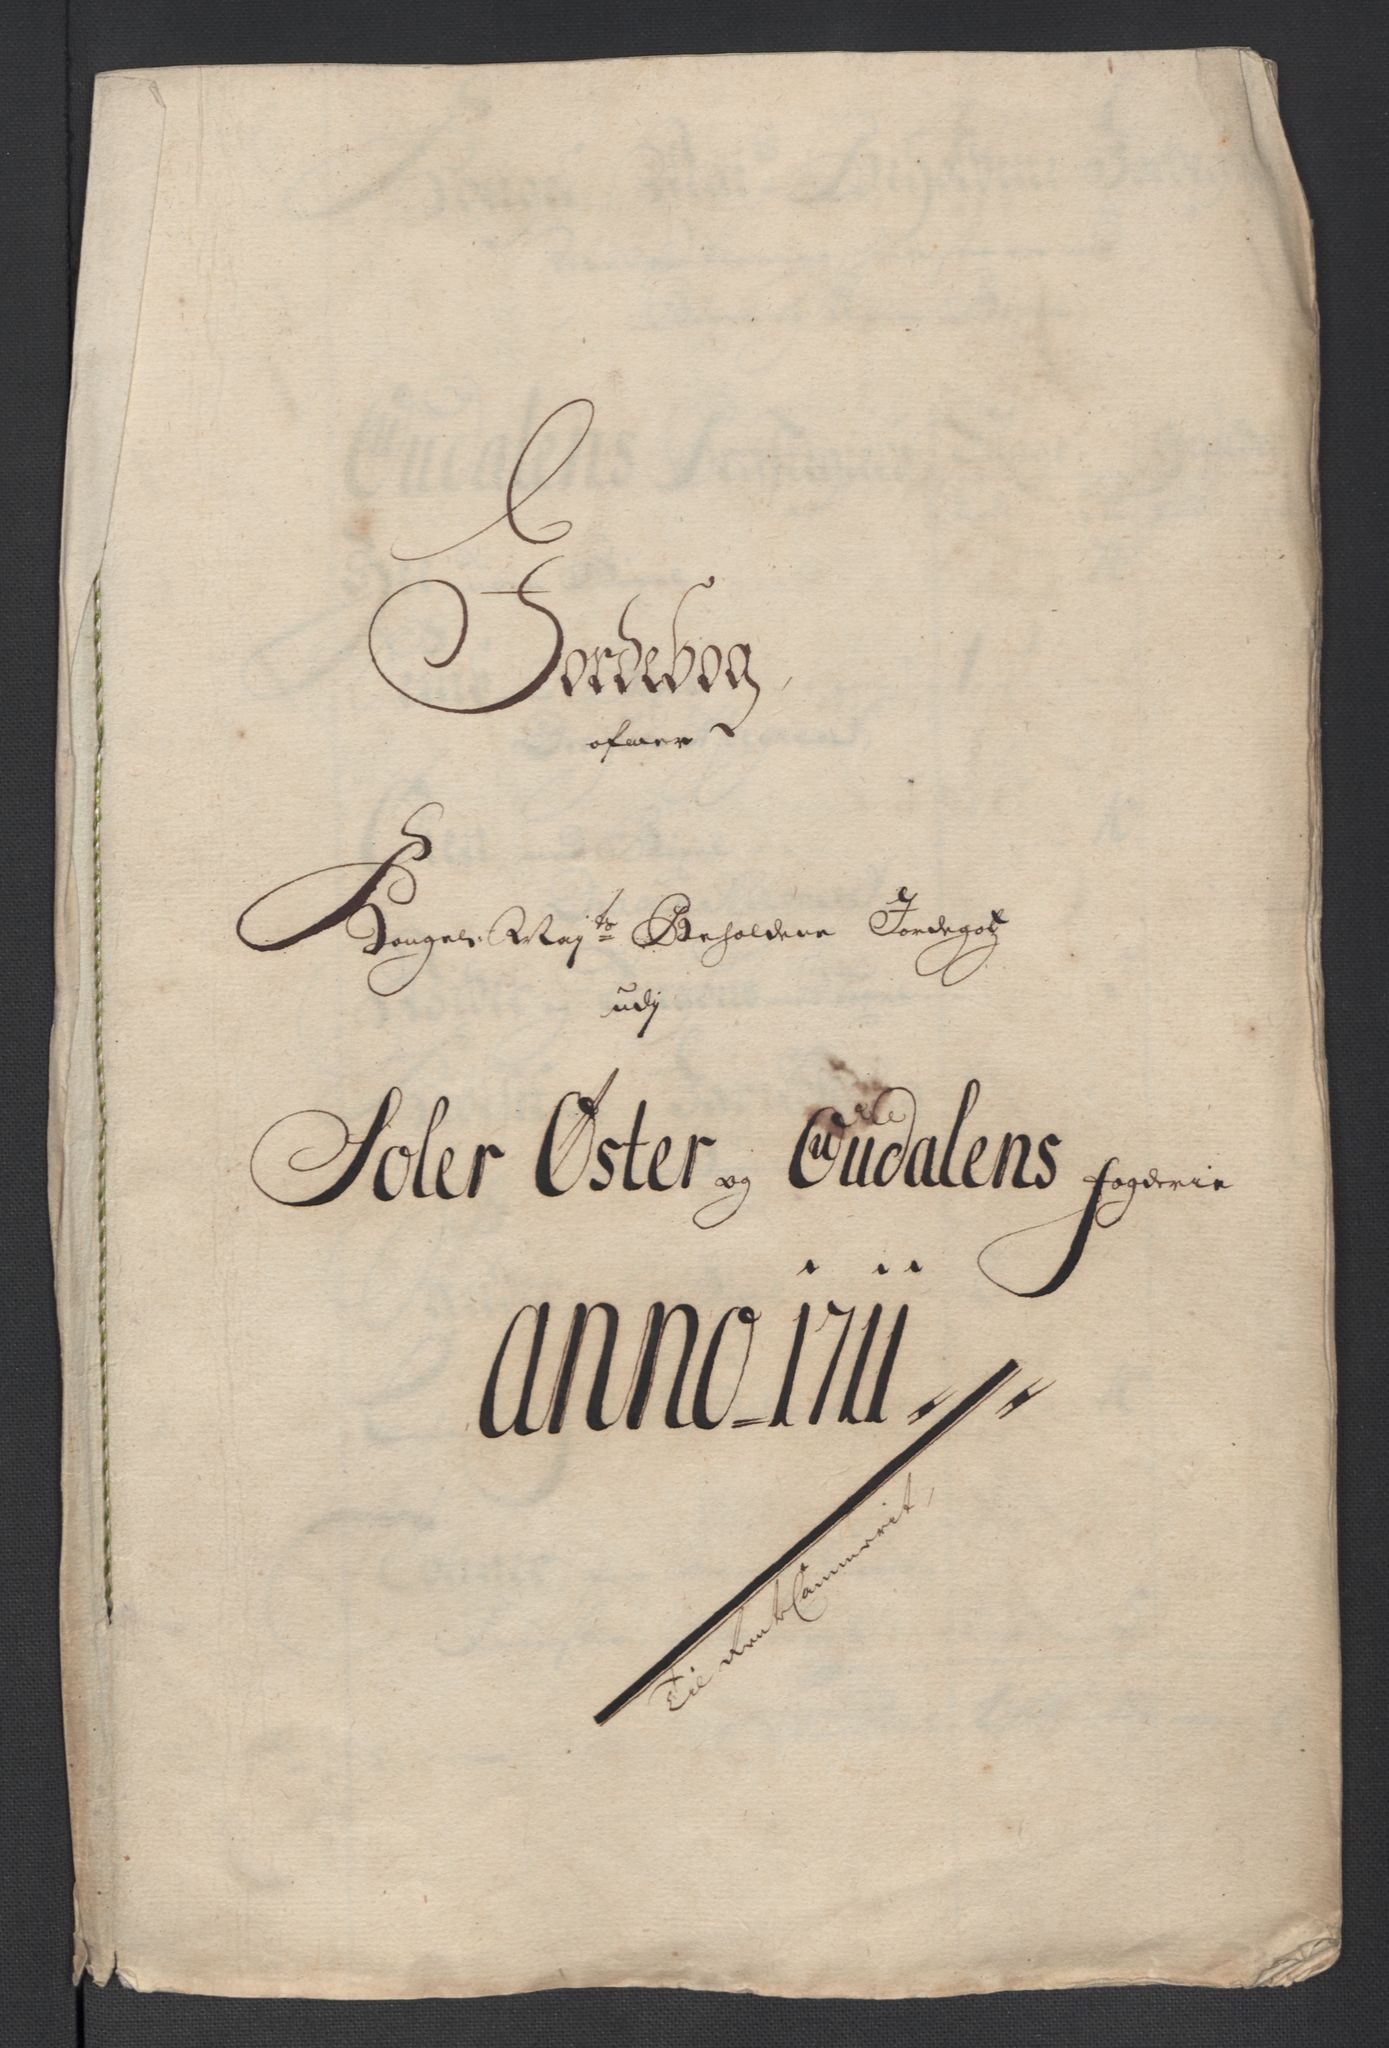 Jordebog
ofwer
Kongel: Maj:ts Beholdene Jordegotz
udj
Soler Øster og Oudalens fogderie
anno 1711
Til Rente Cammerit,